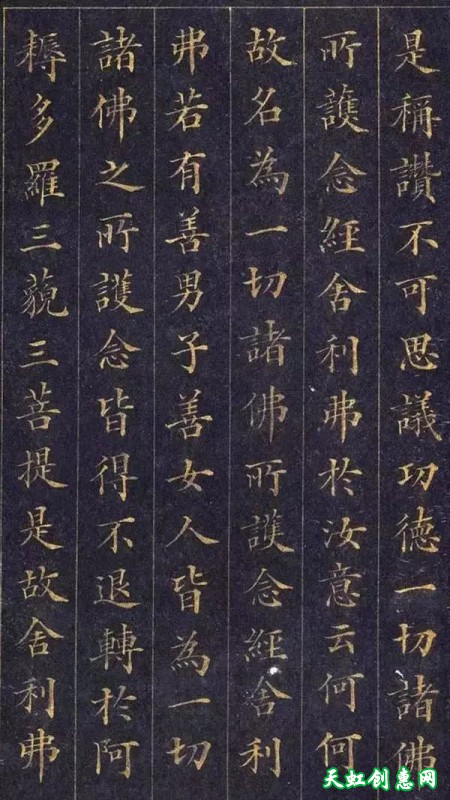 是稱讚不可思議功德一切諸佛
所護念經舍利弗於汝意云何何
故名為一切諸佛所護念經舍利
弗若有善男子善女人皆為一切
諸佛之所護念皆得不退轉於阿
耨多羅三藐三菩提是故舍利弗
天虹创惠网